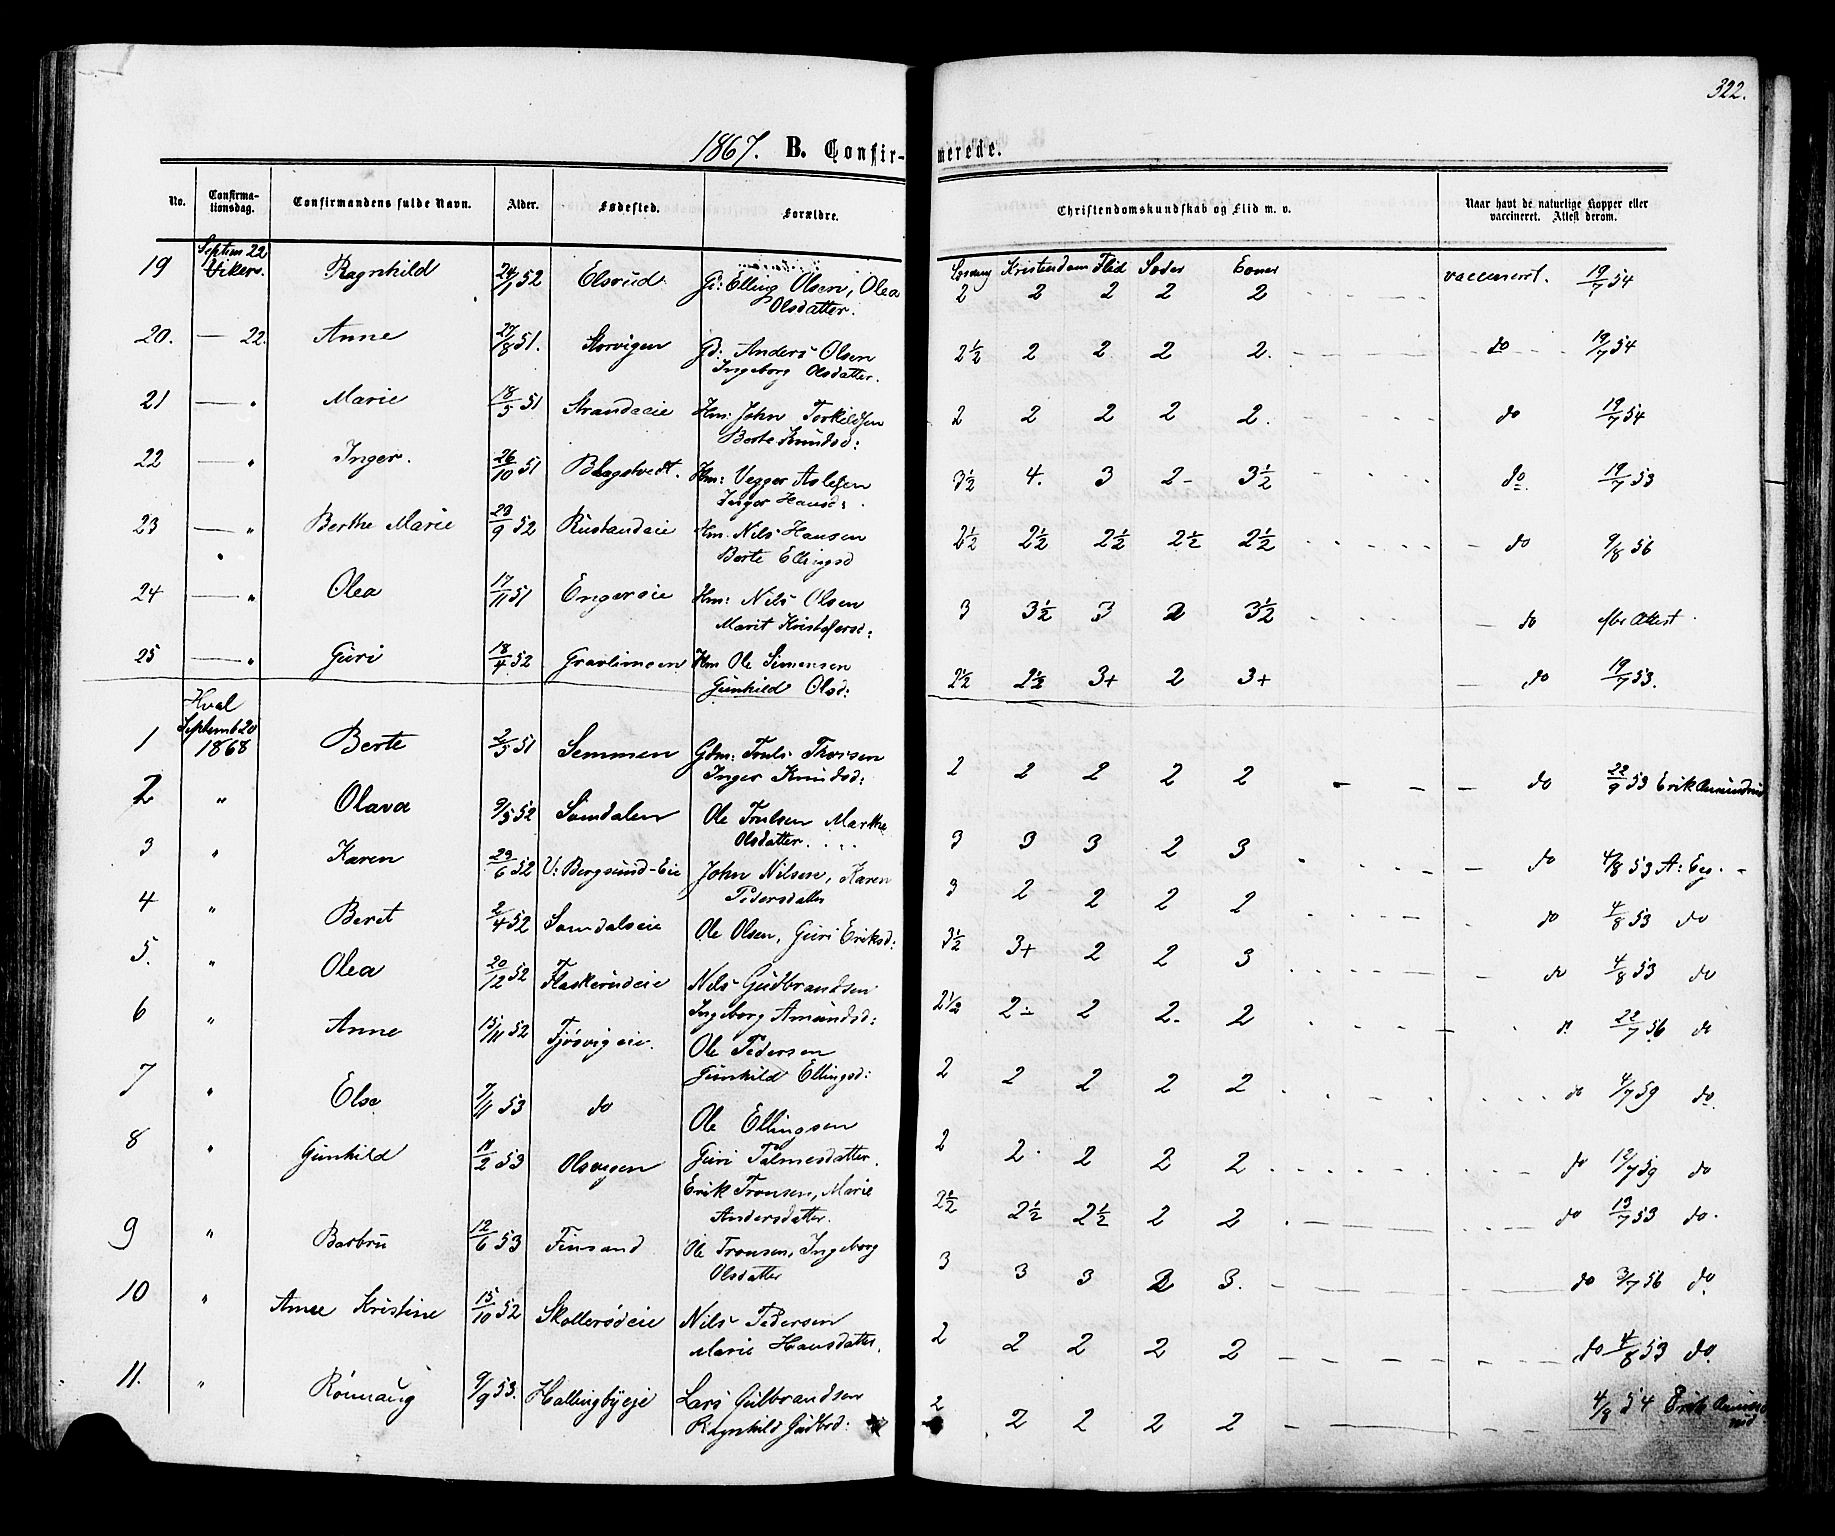 322.
1867. B. Confirmerede.
No. Confirmationsdag. Confirmandens fulde Navn. Alder. Fødested. Forældre. Christendomskundskab og Flid m. v. Naar havt de naturlige Kopper eller vaccineret. Attest derom.
Septem 22 Kristendom Flid Sæder Evner
19 Vikers. Ragnhild 24/1 52 Elsrud G: Elling Olsen, Olea 2 2 2 2 2 vaccineret. 19/7 54
Olsdatter.
20. — 22. Anne 27/8 51. Storvigen Gd: Anders Olsen 2½ 2 2 2 2. do 19/7 54
Ingeborg Olsdatter.
21 — " Marie 18/5 51 Strandeie Hm: John Torkildsen 2 2 2 2 2. do 19/7 54
Berte Knudsd:
22 — " Inger. 26/10 51 Blagstvedt. Hm: Vegger Aslesen 3½ 4. 3 2- 3½ do 19/7 53
Inger Hansd:
23 — " Berthe Marie 23/9 52 Rustandeie Hm. Nils Hansen 2½ 2½ 2½ 2½ 2½ do 9/8 56
Berte Ellingsd
24 — " Olea 17/11 51 Engereie Hm: Nils Olsen 3 3½ 3 2 3½ do Attest.
Marit Kristofersd:
25 — " Guri 18/4 52 Gravlimoen Hm Ole Simensen 2½ 2½ 3+ 2 3+ do 19/7 53.
Gunhild Olsd:
Hval
Septemb 20
1 1868 Berte 2/5 51 Semmen Gdm: Truls Thorsen 2 2 2 2 2 do 22/9 53 Erik Amundrud
Inger Knudsd:
2 " Olava 9/5 52 Somdalen Ole Trulsen Marthe 3 3 3 2 3 do 4/8 53 A: Eg.
Olsdatter.
3 " Karen 23/6 52 V: Bergsund-Eie John Nilsen, Karen 3 2 2 2 2 do 4/8 53 do
Pedersdatter
4 " Beret 2/4 52 Somdalseie Ole Olsen, Guri Eriksd: 3½ 3+ 2 2 3 do 4/8 53 do
5. " Olea 20/12 52 Flaskerudeie Nils Gudbrandsen 2½ 2- 2 2- 2 do 22/7 56 do
Ingeborg Amundsd:
6 " Anne 15/11 52 Tjøsvigeie. Ole Pedersen 2 2 2 2 2 do 4/7 59 do.
Gunhild Ellingsd:
7 " Else 7/11 53 do Ole Ellingsen 2 2. 2 2 2 do 12/7 59 do
Guri Palmesdatter.
8 " Gunhild 11/2 53 Olsvegen Erik Tronsen, Marie 2½ 2½ 2½ 2 2 do 13/7 53 do.
Andersdatter.
9 " Barbru 12/6 53 Finsand Ole Tronsen, Ingeborg 3 3 3 2 3. do 3/7 56 do.
Olsdatter
10 " Anne Kristine 15/10 52 Skollerødeie Nils Pedersen 2 2 2 2 2 do 4/8 53 do.
Marie Hansdatter.
11. " Rønnaug 9/9 53. Hallingbyeje Lars Gulbrandsen 2 2 2 2 2 4/8 54 Erik Amund
Ragnhild Gudbrd: rud